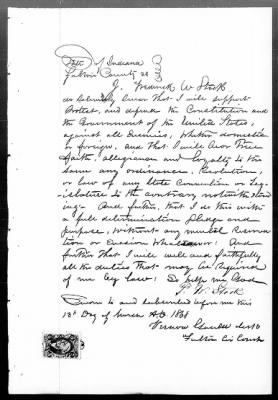 State of Indiana
Fulton County SS
I, Fredrick W Stock
do Solemnly Swear that I will support
Protect, and defend the Constitution and
the Government of the United States,
against all Enemies, whether domestic
or foreign, and that I will bear True
faith, allegiance and loyalty to the
same any ordinance, Resolution,
or law of any State Convention or Leg-
islature to the contrary notwithstand
ing. And further, that I do this with
a full determination pledge and
purpose, without any mental Reserva
tion or Evasion Whatsoever: And
further that I will well and faithfully
all the duties that may be Required
of me by law: So help me God
F. W. Stock
Sworn to and subscribed before me this
18th Day of A.D. 186
Vernon Clerk
Fulton Cir Court